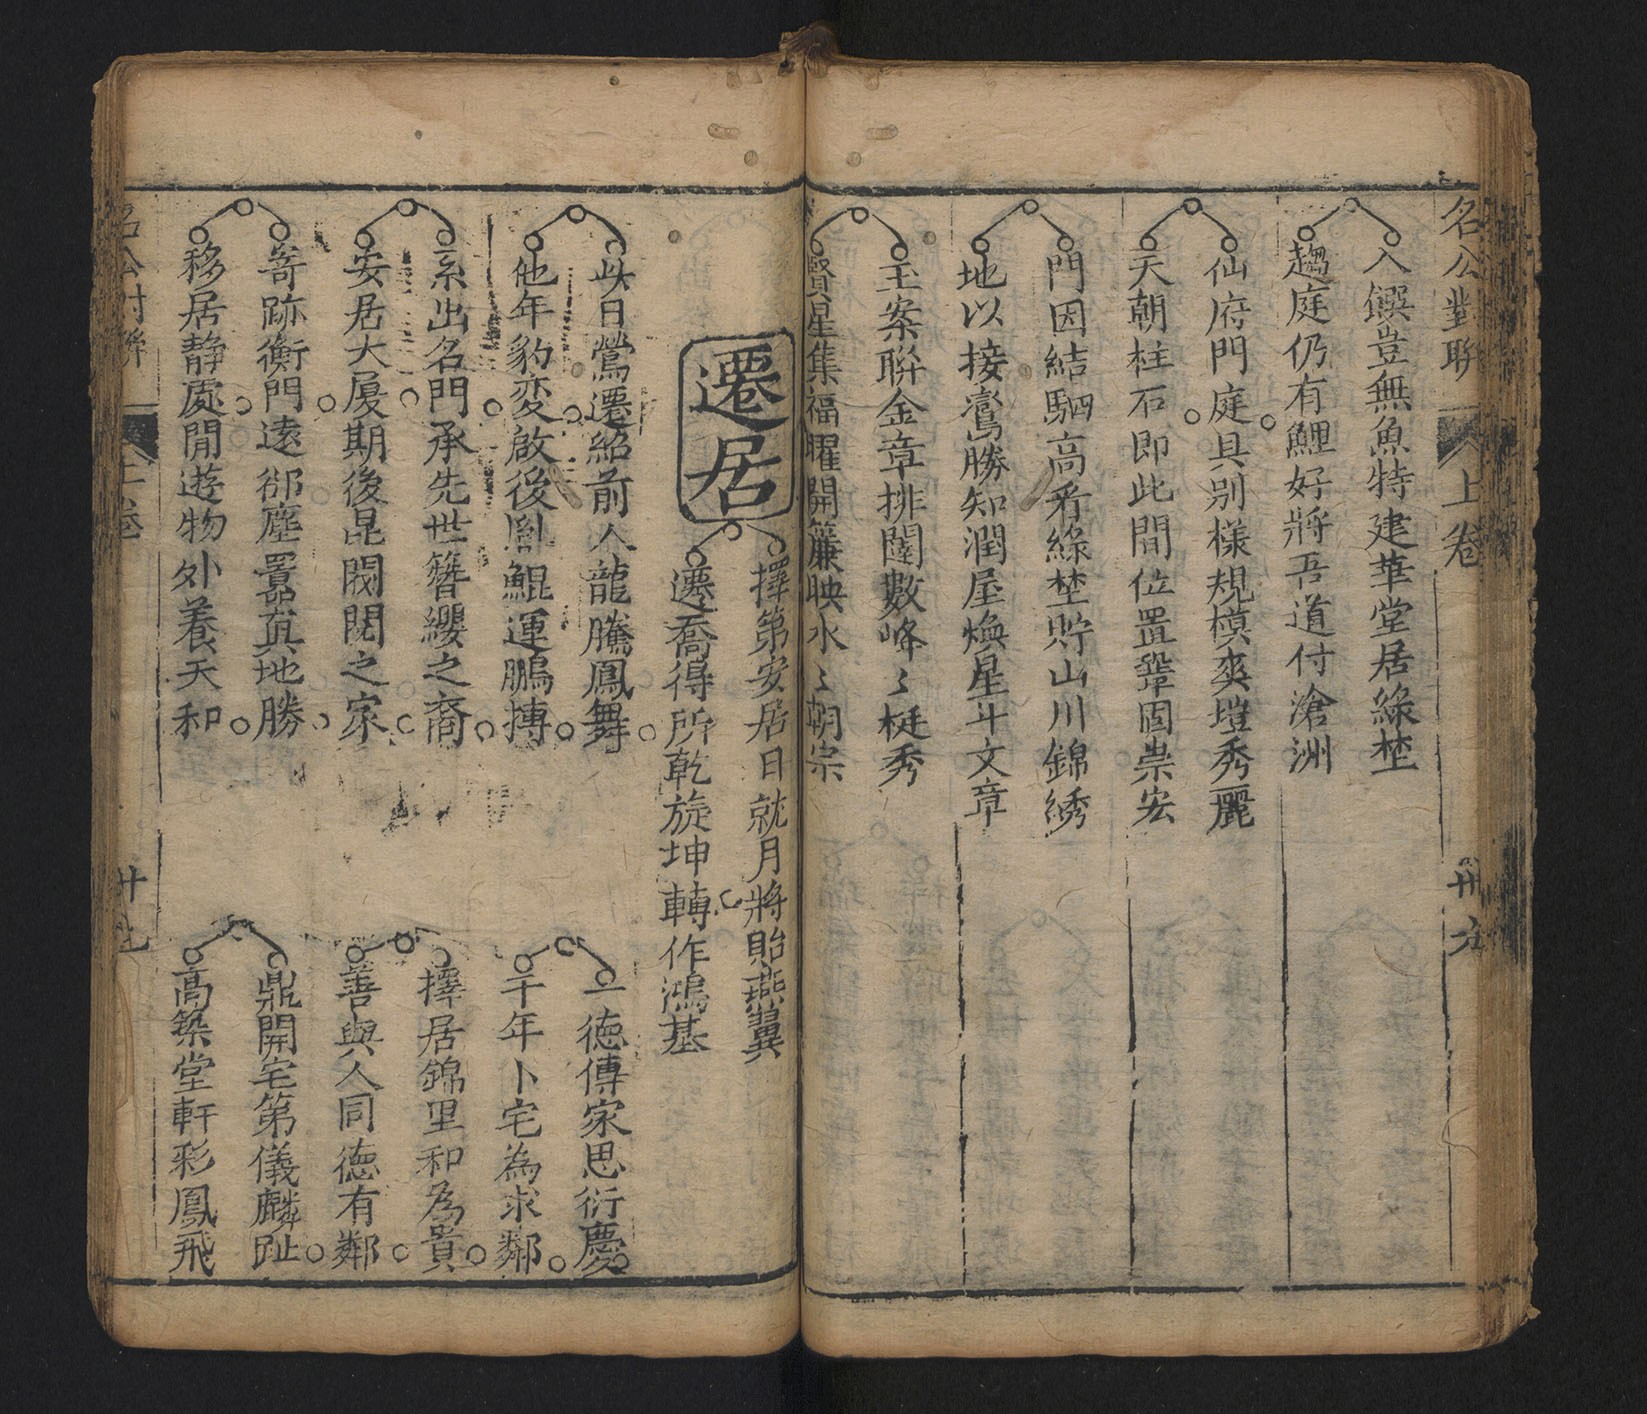 名公對聯
上卷
卅六
入饌豈無魚特建華堂居綠埜
趨庭仍有鯉好將吾道付滄洲
仙府門庭具別樣規模爽塏秀麗
天朝柱石即此間位置鞏固崇宏
門因結駟高看綠埜貯山川錦綉
地以接鸞勝知潤屋煥星斗文章
玉案聯金章排闥數峰〻梃秀
賢星集福曜開簾映水〻朝宗
遷居
擇第安居日就月將貽燕翼
遷喬得所乾旋坤轉作鴻基
此日鶯遷紹前人龍騰鳳舞
他年豹変啟後胤鯤運鵬摶
系出名門承先世簪纓之裔
安居大厦期後昆閥閱之家
寄跡衡門遠郤塵囂真地勝
移居静處閒遊物外養天和
一德傳家思衍慶
千年卜宅為求鄰
擇居錦里和為貴
善與人同德有鄰
鼎開宅第儀麟趾
高築堂軒彩鳳飛
名公對聯
上卷